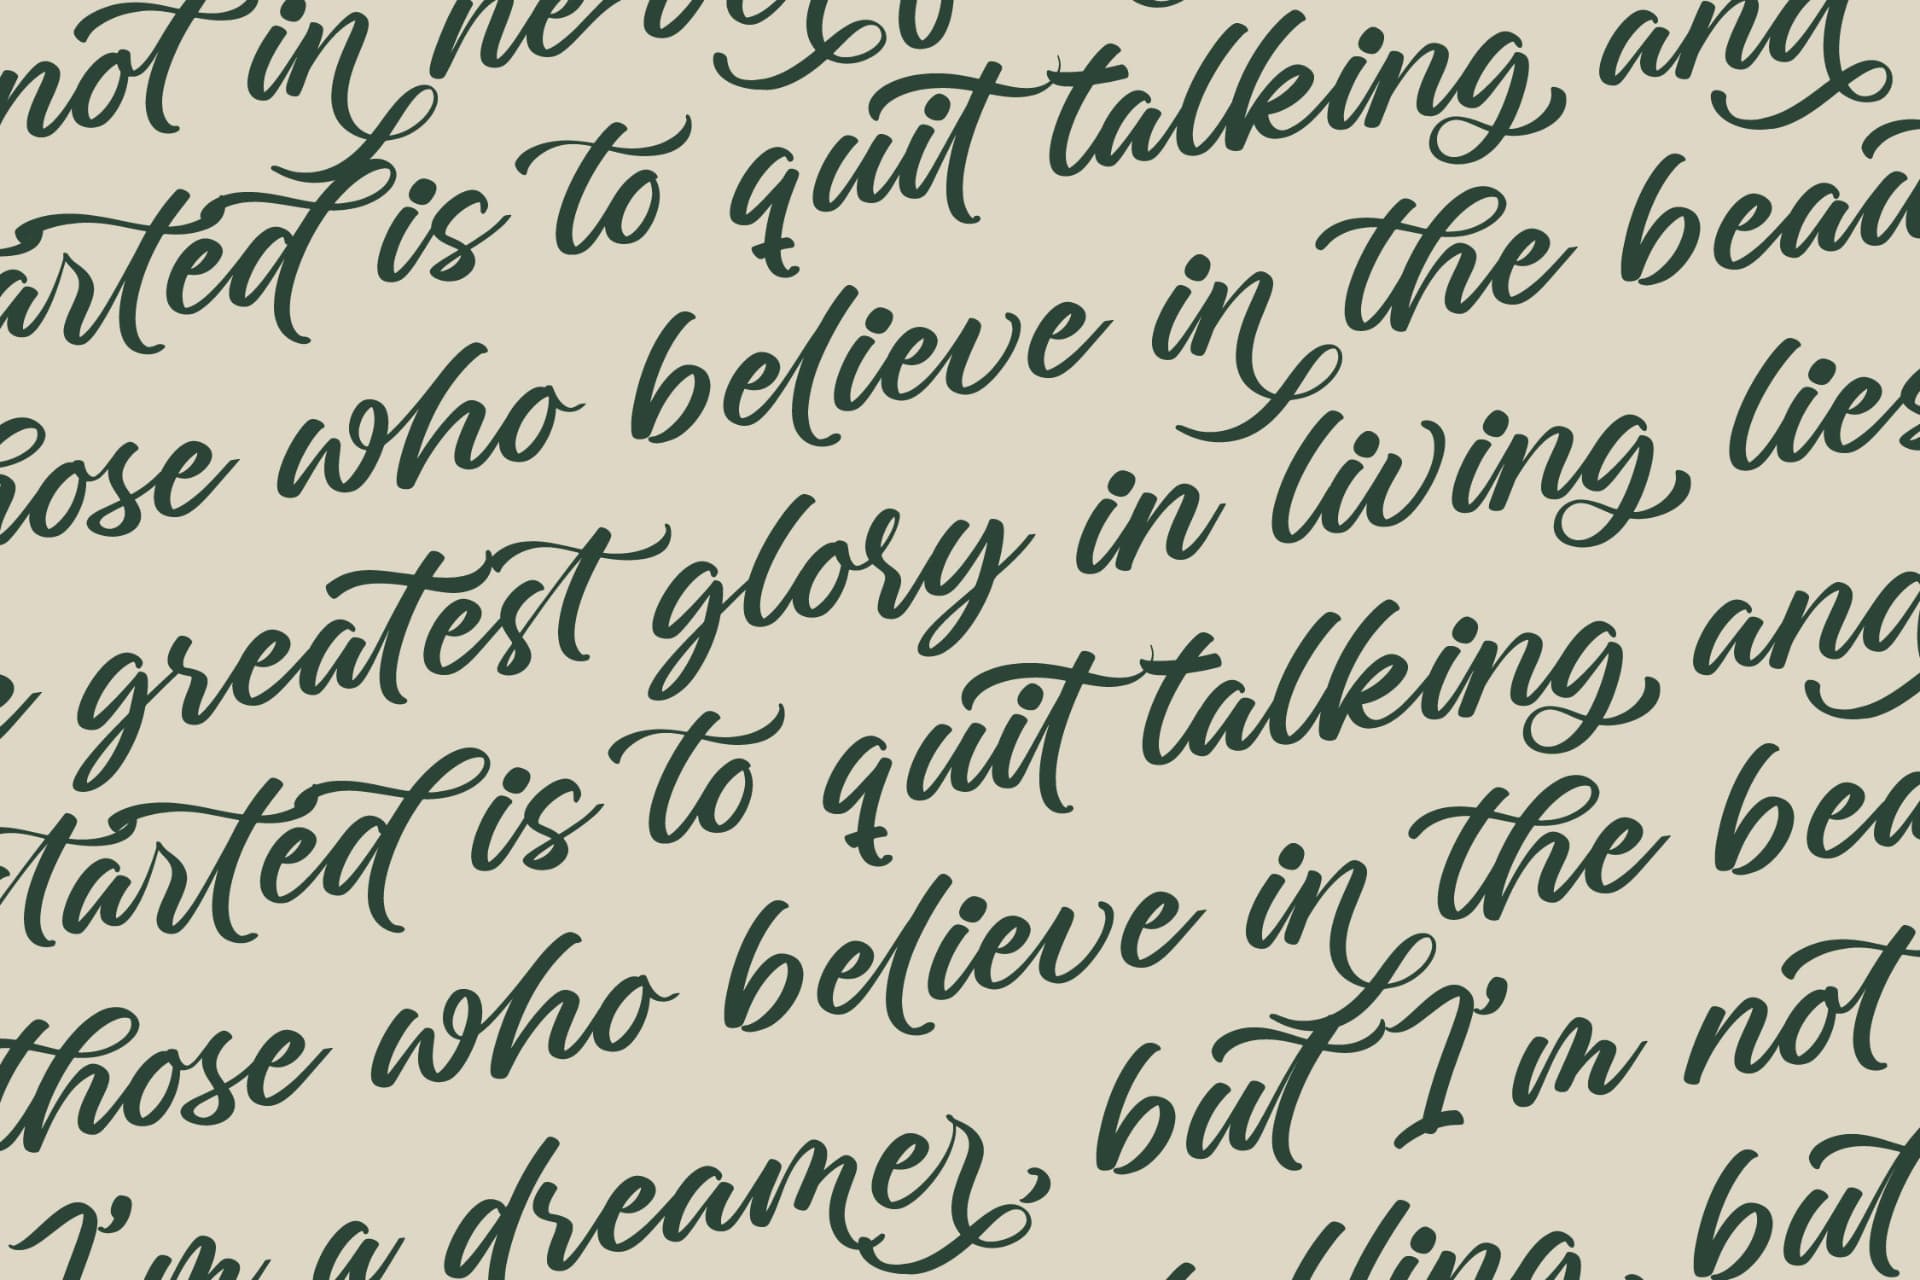 not in
arted is to quit talking and
hose who believe in the beau
e greatest glory in living lies
started is to quit talking and
those who believe in the bea
I'm a dreamer, but I'm not
but